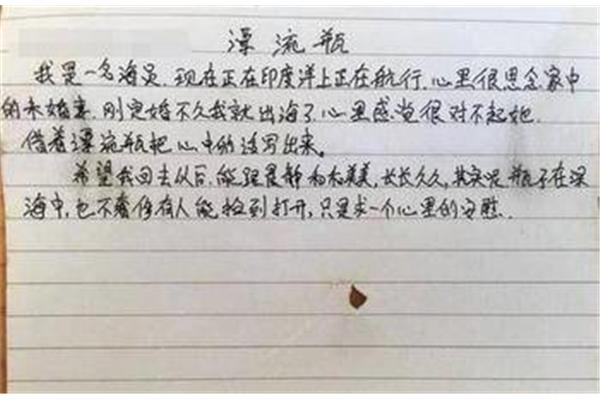 漂流瓶
我是一名海员,现在正在印度洋上正在航行,心里很思念家中
的未婚妻,刚定婚不久我就出海了,心里感觉很对不起她,
借着漂流瓶把心中的话写出来。
希望我回去以后,能跟晨静和和美美,长长久久,其实呢瓶子在深
海中,也不奢侈有人能捡到打开,只是求一个心里的安慰.